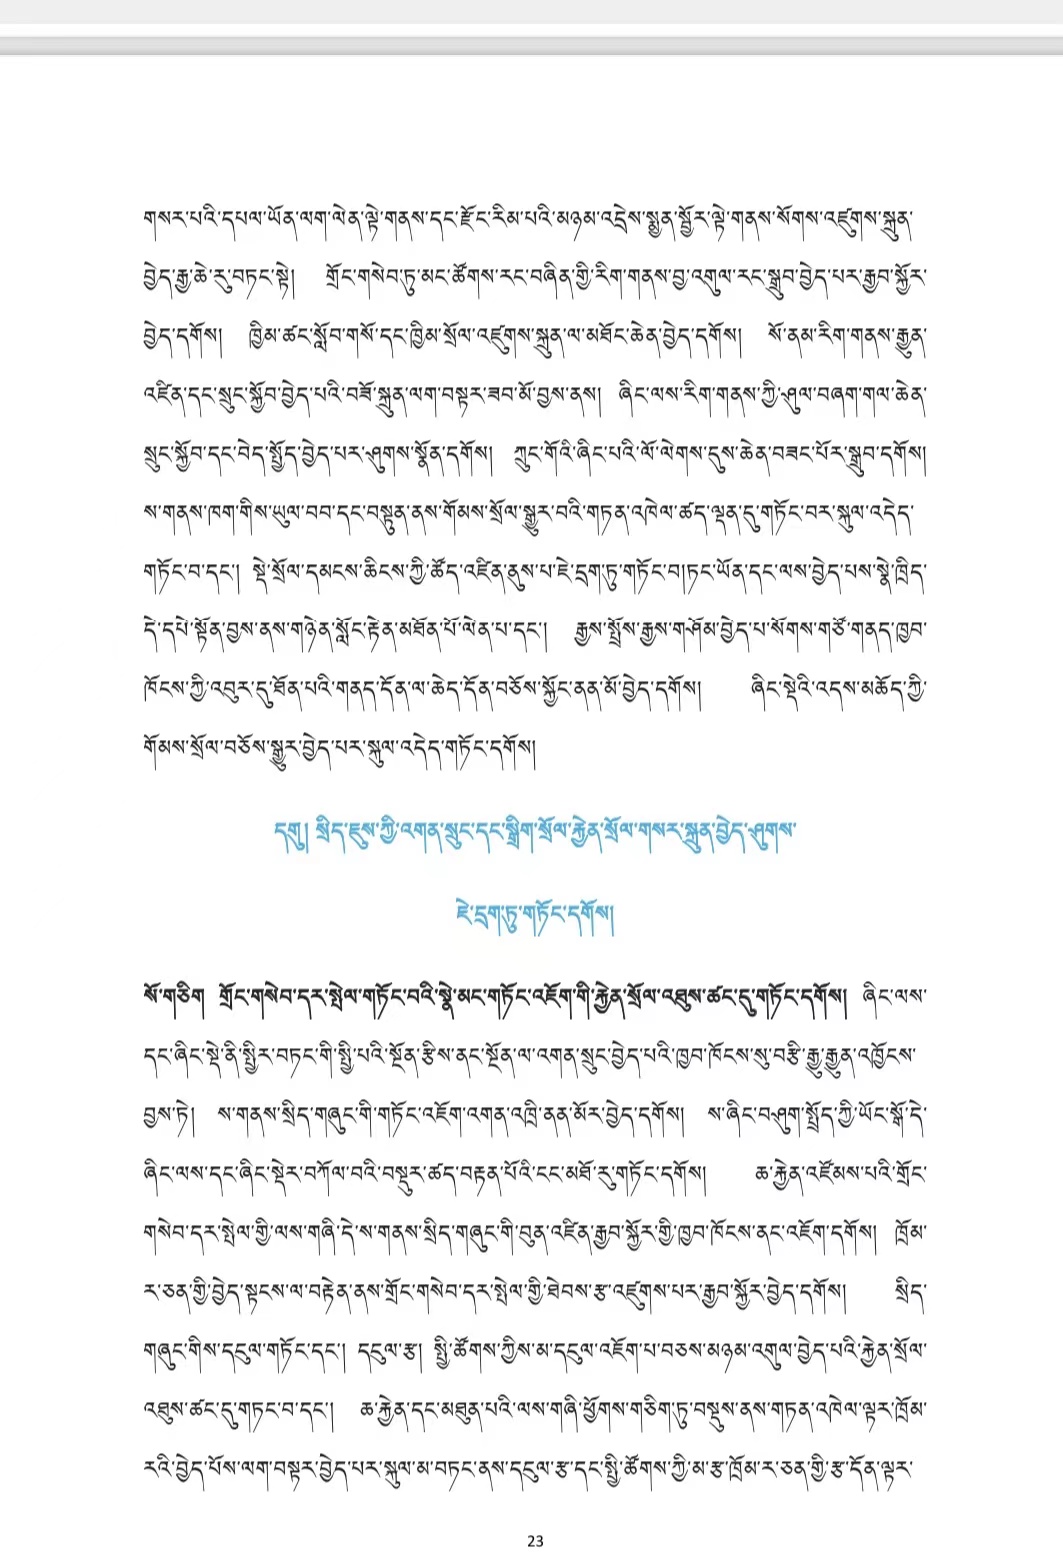 གསར་པའི་དཔལ་ཡོན་ལག་ལེན་ལྟེ་གནས་དང་རྫོང་རིམ་པའི་མཉམ་འདྲེས་སྨྱན་སྦྱོར་ལྟེ་གནས་སོགས་འཛུགས་སྐྲུན་
བྱེད་རྒྱ་ཆེ་རུ་བཏང་སྟེ། གྲོང་གསེབ་ཏུ་མང་ཚོགས་རང་བཞིན་གྱི་རིག་གནས་བྱ་འགུལ་རང་སྒྲུབ་བྱེད་པར་རྒྱབ་སྐྱོར་
བྱེད་དགོས། ཁྱིམ་ཚང་སློབ་གསོ་དང་ཁྱིམ་སྲོལ་འཛུགས་སྐྲུན་ལ་མཐོང་ཆེན་བྱེད་དགོས། སོ་ནམ་རིག་གནས་རྒྱུན་
འཛིན་དང་སྲུང་སྐྱོབ་བྱེད་པའི་བཟོ་སྐྲུན་ལག་བསྟར་ཟབ་མོ་བྱས་ནས། ཞིང་ལས་རིག་གནས་ཀྱི་ཤུལ་བཞག་གལ་ཆེན་
སྲུང་སྐྱོབ་དང་བེད་སྤྱོད་བྱེད་པར་ཤུགས་སྣོན་དགོས། ཀྲུང་གོའི་ཞིང་པའི་ལོ་ལེགས་དུས་ཆེན་བཟང་པོར་སྒྲུབ་དགོས།
ས་གནས་ཁག་གིས་ཡུལ་བབ་དང་བསྟུན་ནས་གོམས་སྲོལ་སྒྱུར་བའི་གཏན་འཁེལ་ཚད་ལྡན་དུ་གཏོང་བར་སྐུལ་འདེད་
གཏོང་བ་དང་། སྡེ་སྲོལ་དམངས་ཆིངས་ཀྱི་ཚོད་འཛིན་ནུས་པ་ཇེ་དྲག་ཏུ་གཏོང་བ།ཏང་ཡོན་དང་ལས་བྱེད་པས་སྣེ་ཁྲིད་
དེ་དཔེ་སྟོན་བྱས་ནས་གཉེན་སློང་རྟེན་མཐོན་པོ་ལེན་པ་དང་། རྒྱས་སྤྲོས་རྒྱས་གཤོམ་བྱེད་པ་སོགས་གཙོ་གནད་ཁྱབ་
ཁོངས་ཀྱི་འབུར་དུ་ཐོན་པའི་གནད་དོན་ལ་ཆེད་དོན་བཅོས་སྐྱོང་ནན་མོ་བྱེད་དགོས། ཞིང་སྡེའི་འདས་མཆོད་ཀྱི་
གོམས་སྲོལ་བཅོས་སྒྱུར་བྱེད་པར་སྐུལ་འདེད་གཏོང་དགོས།
དགུ། སྲིད་ཇུས་ཀྱི་འགན་སྲུང་དང་སྒྲིག་སྲོལ་རྐྱེན་སྲོལ་གསར་སྐྲུན་བྱེད་ཤུགས་
ཇེ་དྲག་ཏུ་གཏོང་དགོས།
སོ་གཅིག གྲོང་གསེབ་དར་སྤེལ་གཏོང་བའི་སྣེ་མང་གཏོང་འཇོག་གི་རྐྱེན་སྲོལ་འཐུས་ཚང་དུ་གཏོང་དགོས། ཞིང་ལས་
དང་ཞིང་སྡེ་ནི་སྤྱིར་བཏང་གི་སྤྱི་པའི་སྔོན་རྩིས་ནང་སྔོན་ལ་འགན་སྲུང་བྱེད་པའི་ཁྱབ་ཁོངས་སུ་བརྩི་རྒྱུ་རྒྱུན་འཁྱོངས་
བྱས་ཏེ། ས་གནས་སྲིད་གཞུང་གི་གཏོང་འཇོག་འགན་འཁྲི་ནན་མོར་བྱེད་དགོས། ས་ཞིང་བཤུག་སྤྲོད་ཀྱི་ཡོང་སྒོ་དེ་
ཞིང་ལས་དང་ཞིང་སྡེར་བཀོལ་བའི་བསྡུར་ཚད་བརྟན་པོའི་ངང་མཐོ་རུ་གཏོང་དགོས། ཆ་རྐྱེན་འཛོམས་པའི་གྲོང་
གསེབ་དར་སྤེལ་གྱི་ལས་གཞི་དེ་ས་གནས་སྲིད་གཞུང་གི་བུན་འཛིན་རྒྱབ་སྐྱོར་གྱི་ཁྱབ་ཁོངས་ནང་འཇོག་དགོས། ཁྲོམ་
ར་ཅན་གྱི་བྱེད་སྟངས་ལ་བརྟེན་ནས་གྲོང་གསེབ་དར་སྤེལ་གྱི་ཐེབས་རྩ་འཛུགས་པར་རྒྱབ་སྐྱོར་བྱེད་དགོས། སྲིད་
གཞུང་གིས་དངུལ་གཏོང་དང་། དངུལ་རྩ། སྤྱི་ཚོགས་ཀྱིས་མ་དངུལ་འཇོག་པ་བཅས་མཉམ་འགུལ་བྱེད་པའི་རྐྱེན་སྲོལ་
འཐུས་ཚང་དུ་གཏང་བ་དང་། ཆ་རྐྱེན་དང་མཐུན་པའི་ལས་གཞི་ཕྱོགས་གཅིག་ཏུ་བསྡུས་ནས་གཏན་འཁེལ་ལྟར་ཁྲོམ་
རའི་བྱེད་པོས་ལག་བསྟར་བྱེད་པར་སྐུལ་མ་བཏང་ནས་དངུལ་རྩ་དང་སྤྱི་ཚོགས་ཀྱི་མ་རྩ་ཁྲོམ་ར་ཅན་གྱི་རྩ་དོན་ལྟར་
23